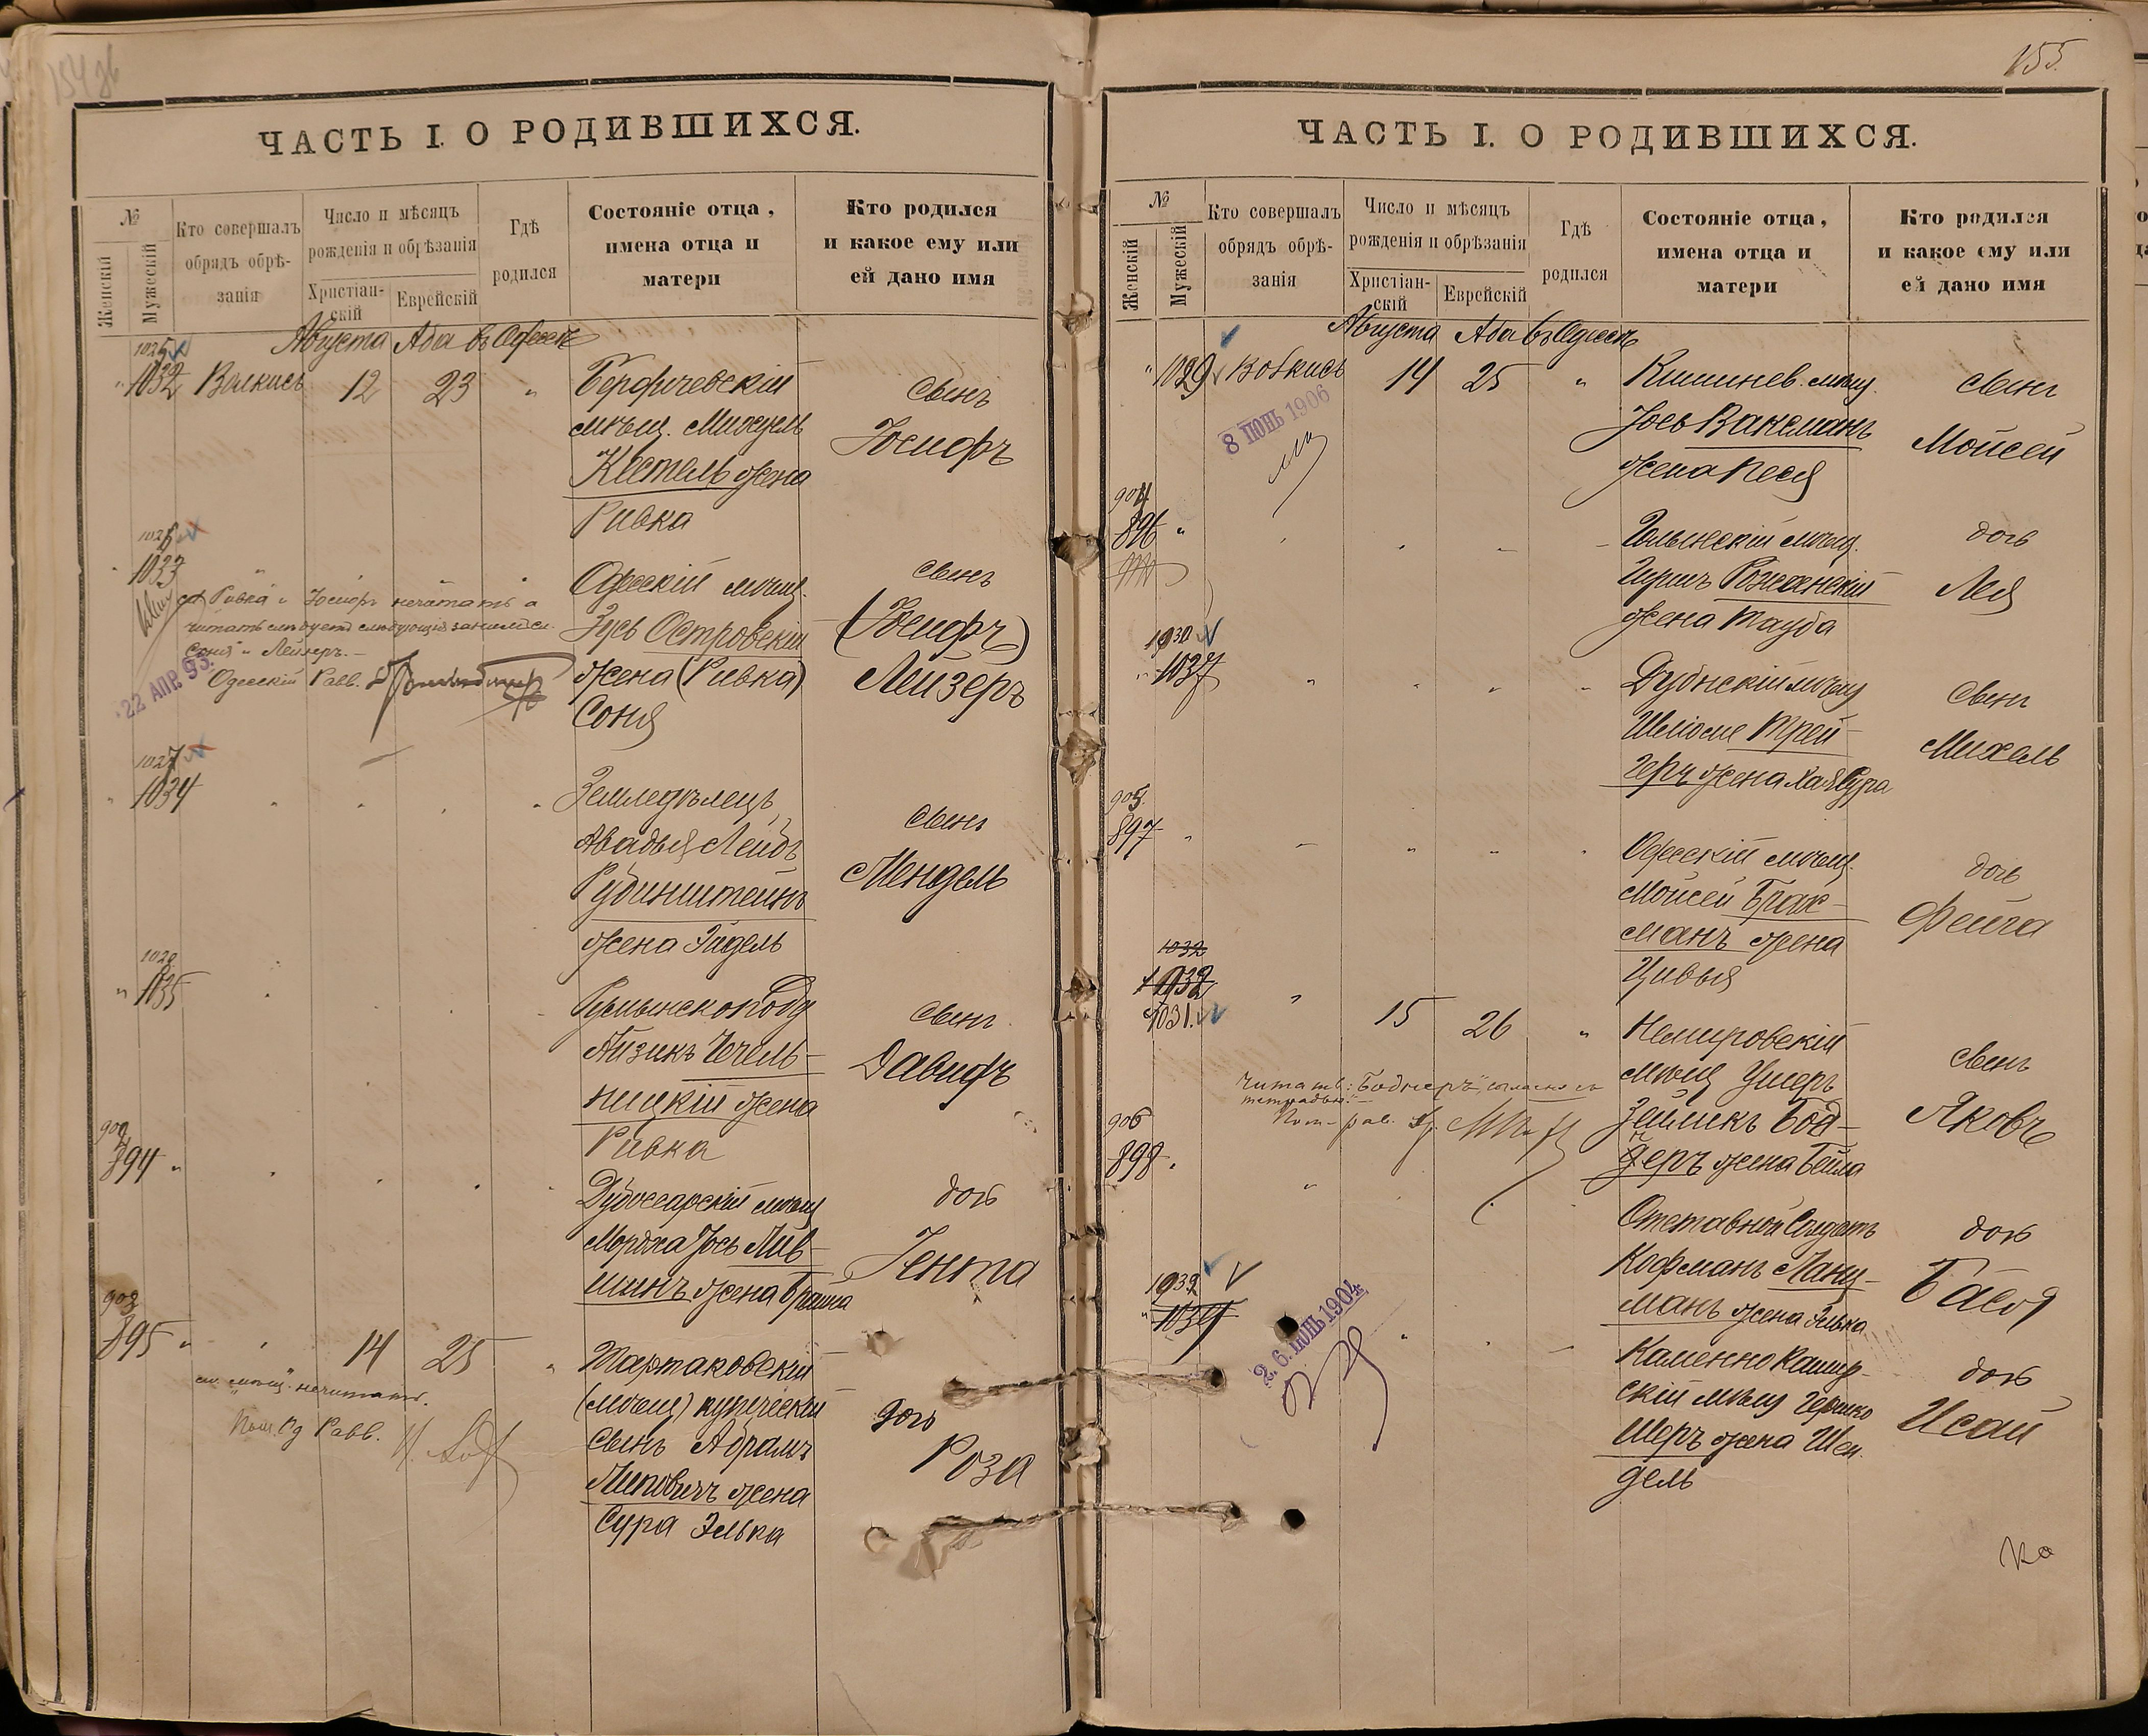 154 об
ЧАСТЬ I. О РОДИВШИХСЯ.
№
Женскій
Мужескій
Кто совершалъ
обрядъ обрѣ-
занія
Число и мѣсяцъ
рожденія и обрѣзанія
Христіан-
скій
Еврейскій
Гдѣ
родился
Состояніе отца,
имена отца и
матери
Кто родился
и какое ему или
ей дано имя
Августа Аба въ Одессѣ
1025
1032 Волкись 12 23 " Бердичевскій
мѣщ. Миохуель
Кестель жена
Ривка
сынъ
Іосифъ
1026
1033
Одесскій мѣщ.
Зусь Островскій
жена (Ривка)
Соня
сынъ
(Іосифъ)
Лейзеръ
сл. Ривка и Іосифъ нечитать а
читать слѣдуетъ слѣдующія за ними сл.
Соня и Лейзеръ.
Одесскій Равв.
22 АПР. 93.
1027
1034
Земледѣлецъ
Авадья Лейбъ
Рубинштейнъ
жена Эйдель
сынъ
Мендель
1028
" 1035
Румынскоподд
Айзикъ Чечель-
ницкій жена
Ривка
сынъ
Давидъ
902
894 "
Дубоссарскій мѣщ
Мордха Іось Лив-
шинъ жена Брайна
дочь
Гента
903
895 " 14 25 "
Тартаковскій
(мѣщ) купеческій
сынъ Абрамъ
Липовичъ жена
Сура Элька
дочь
Роза
сл. "мѣщ." нечитать.
Пом. Од Равв.
155.
ЧАСТЬ I. О РОДИВШИХСЯ.
№
Женскій
Мужескій
Кто совершалъ
обрядъ обрѣ-
занія
Число и мѣсяцъ
рожденія и обрѣзанія
Христіан-
скій
Еврейскій
Гдѣ
родился
Состояніе отца,
имена отца и
матери
Кто родился
и какое ему или
ей дано имя
Августа Аба въ Одессѣ
" 1029 Волкись 14 25 " Кишинев. мѣщ.
Іось Ваксманъ
жена Песя
сынъ
Мойсей
8 ІЮНЬ 1906
904
896 "
мѣщ.
Гершъ
жена Тауба
дочь
Лея
1030
" 1037
Дубнскій мѣщ
Шліоме Трей-
геръ жена Хая Сура
сынъ
Михель
905
897 "
Одесскій мѣщ.
Мойсей Брак-
манъ жена
Цивья
дочь
Фейга
1032
1032
1031. " 15 26 "
Немировскій
мѣщ Ушеръ
Зейликъ Бод-
неръ жена Бейла
сынъ
Яковъ
Читать: "Боднеръ", согласно съ
тетрадью.
Пом. рав.
906
898 "
Отставной Солдатъ
Кофманъ Ланц-
манъ жена Элька
дочь
Бася
1032
" 1039
2 6. ІЮНЬ 1904
Каменно Кашир-
скій мѣщ Гершко
Шеръ жена Шен
дель
дочь
Исай